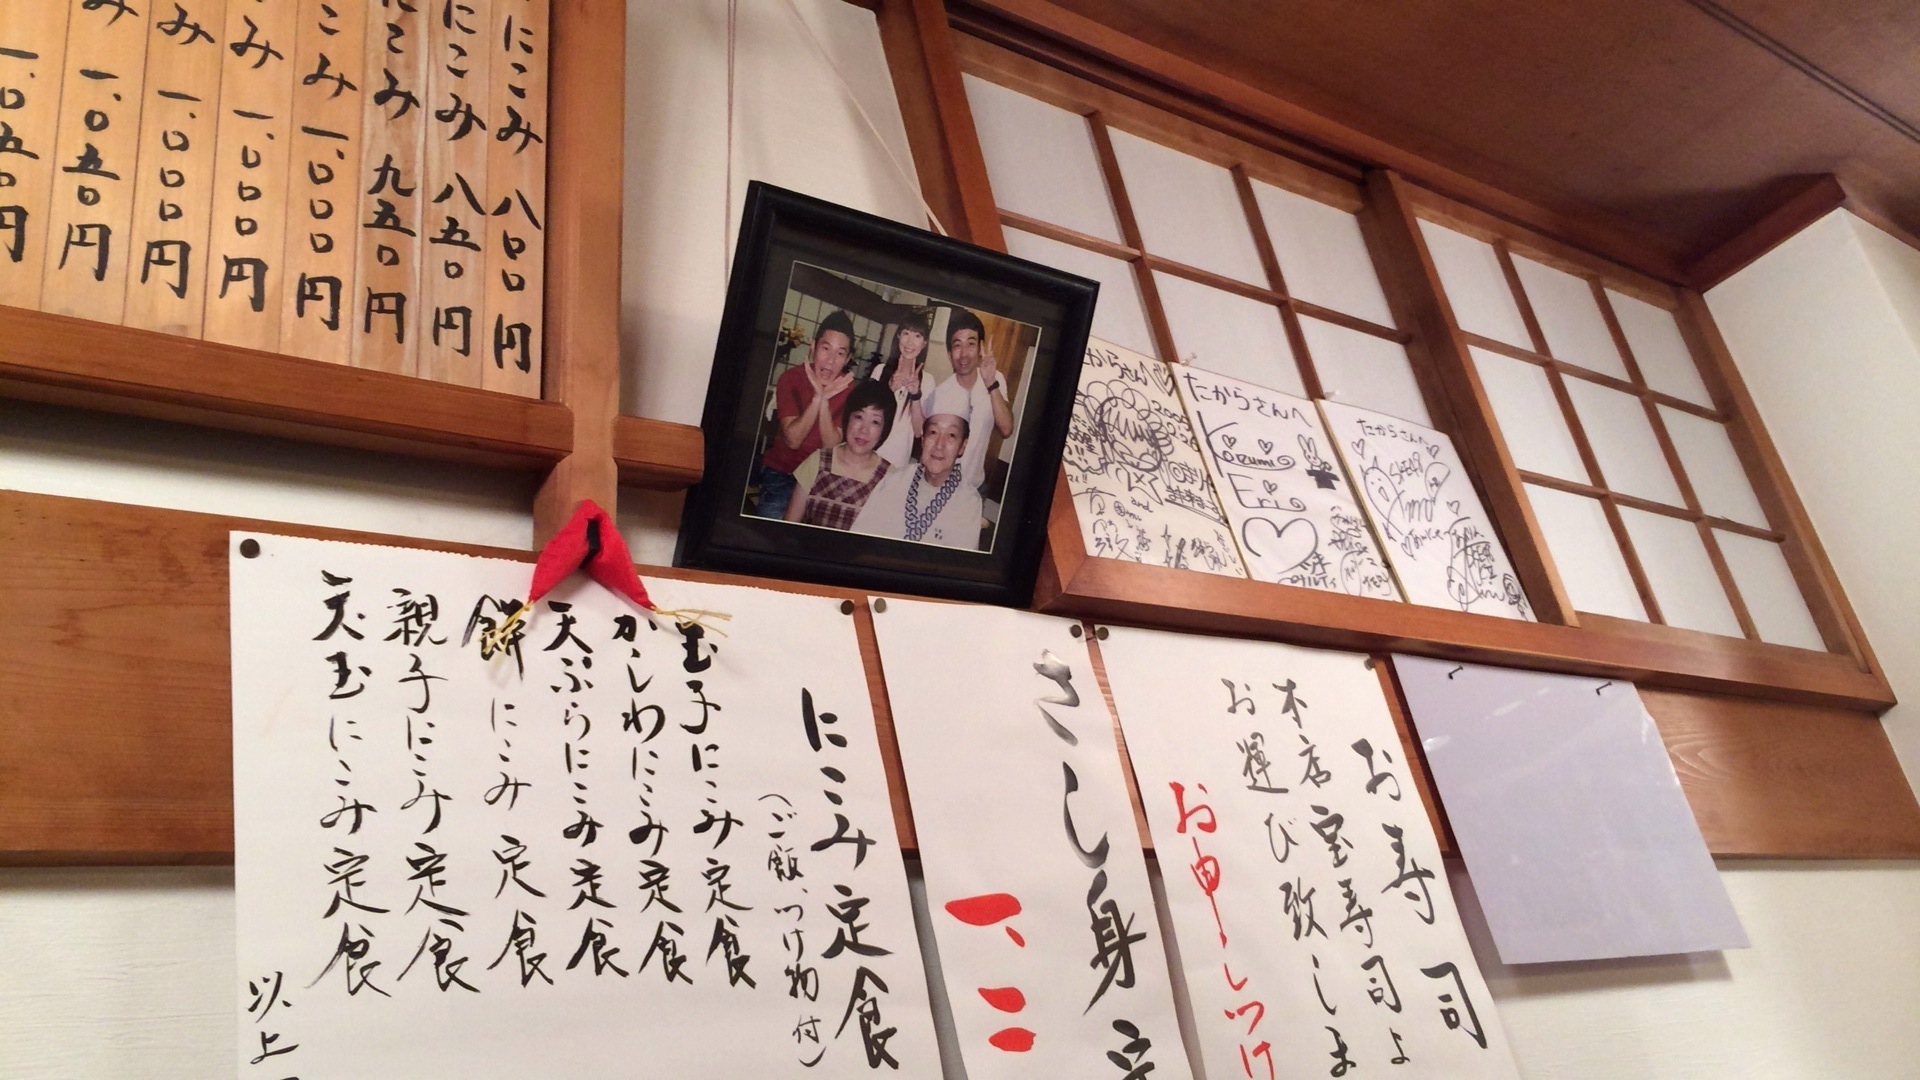 にこみ 八〇〇円
にこみ 八五〇円
にこみ 九五〇円
こみ 一、〇〇〇円
み 一、〇〇〇円
み 一、〇〇〇円
み 一、〇五〇円
一、〇五〇円
たからさんへ
Kozumi
Eri
たからさんへ
SKE48
からさんへ
にこみ定食
(ご飯、つけ物付)
玉子にこみ定食
かしわにこみ定食
天ぷらにこみ定食
餅にこみ定食
親子にこみ定食
天玉にこみ定食
以上
さし身定
一、三
お寿司
本店宝寿司よ
お運び致しま
お申しつけ